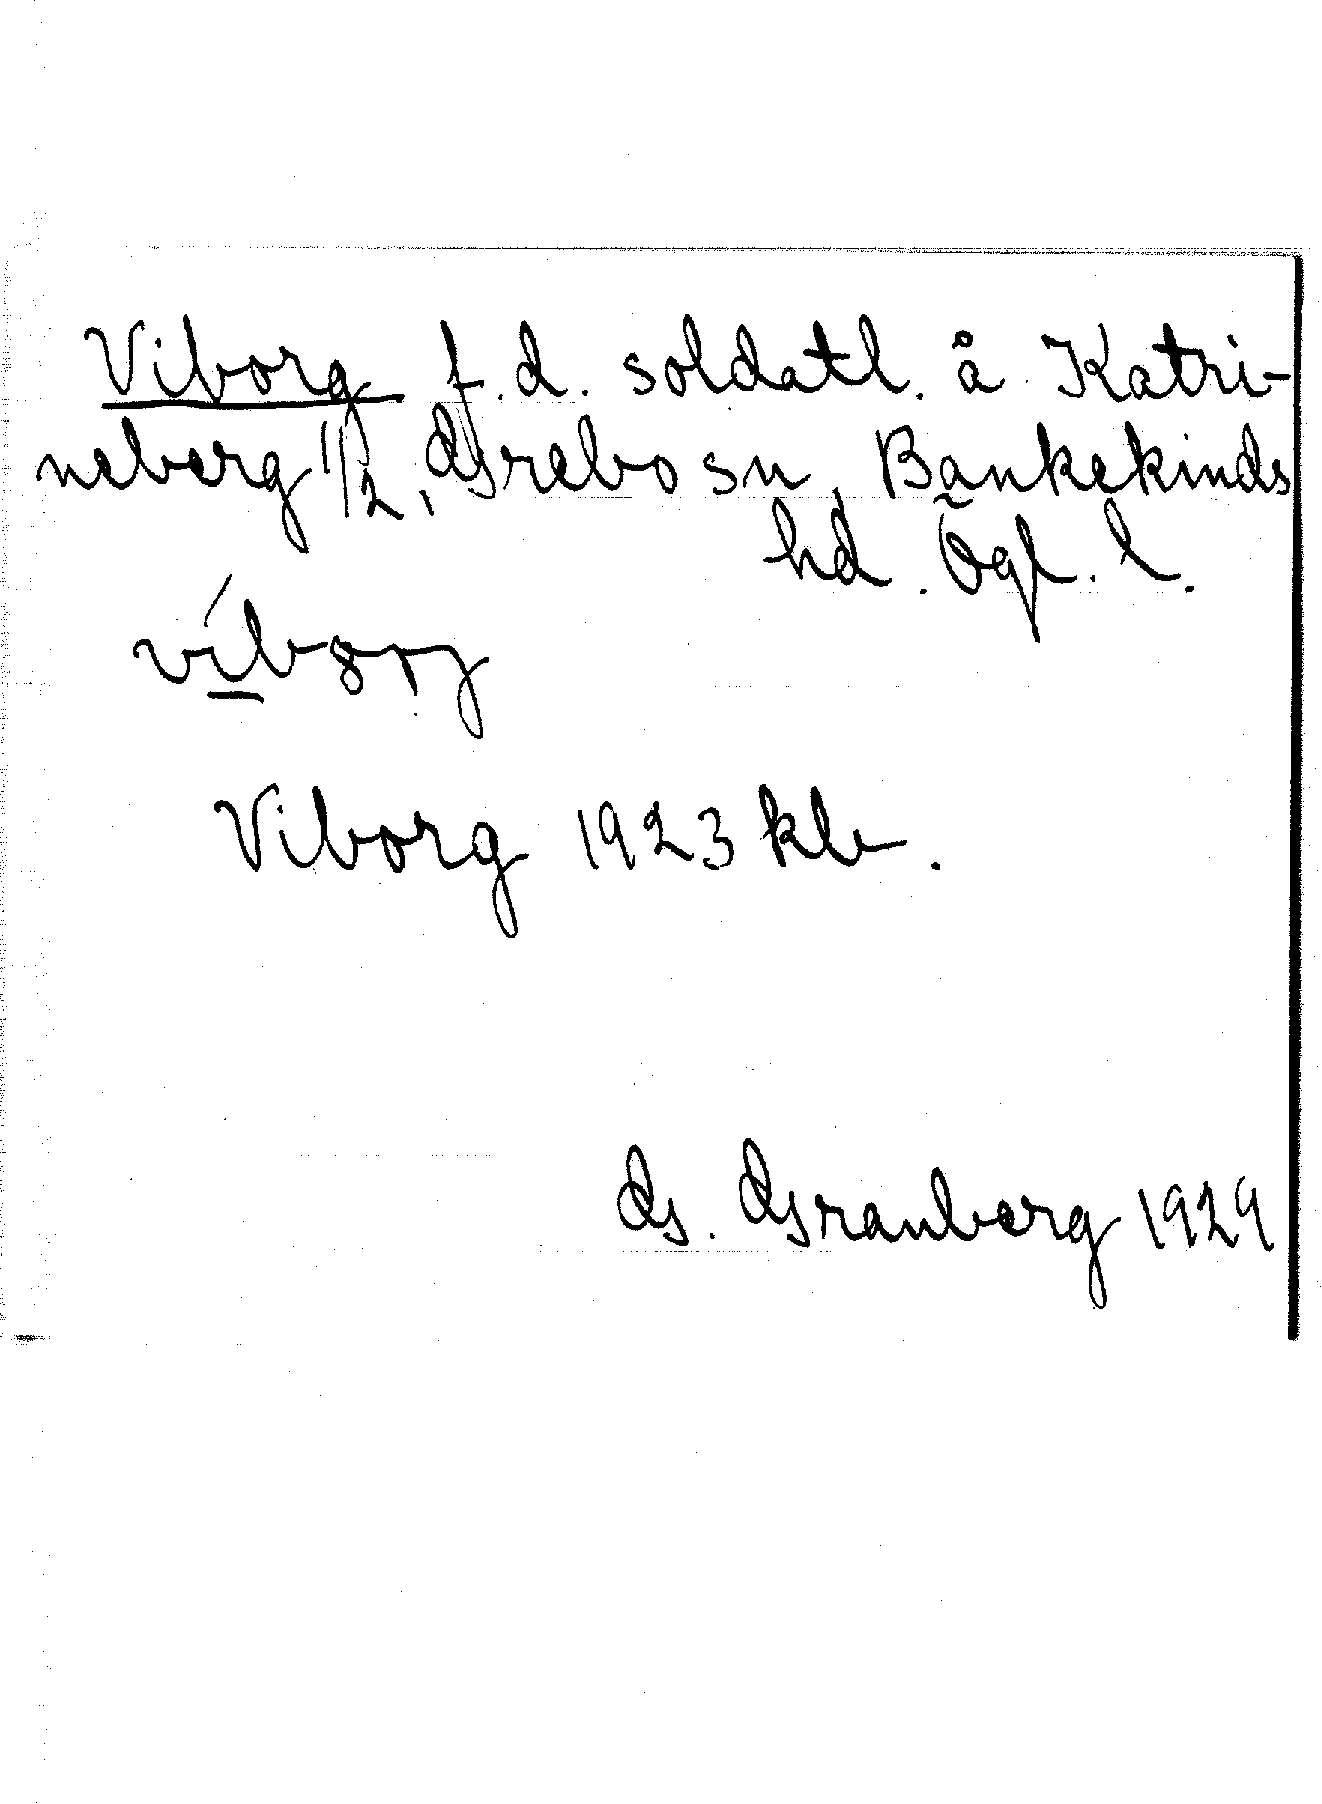 Viborg f.d. soldatl. å Katri-
neberg 1/2, Grebo sn, Bankekinds
hd. Ögl. l.
Viborg 1923 kb.
G. Granberg 1929